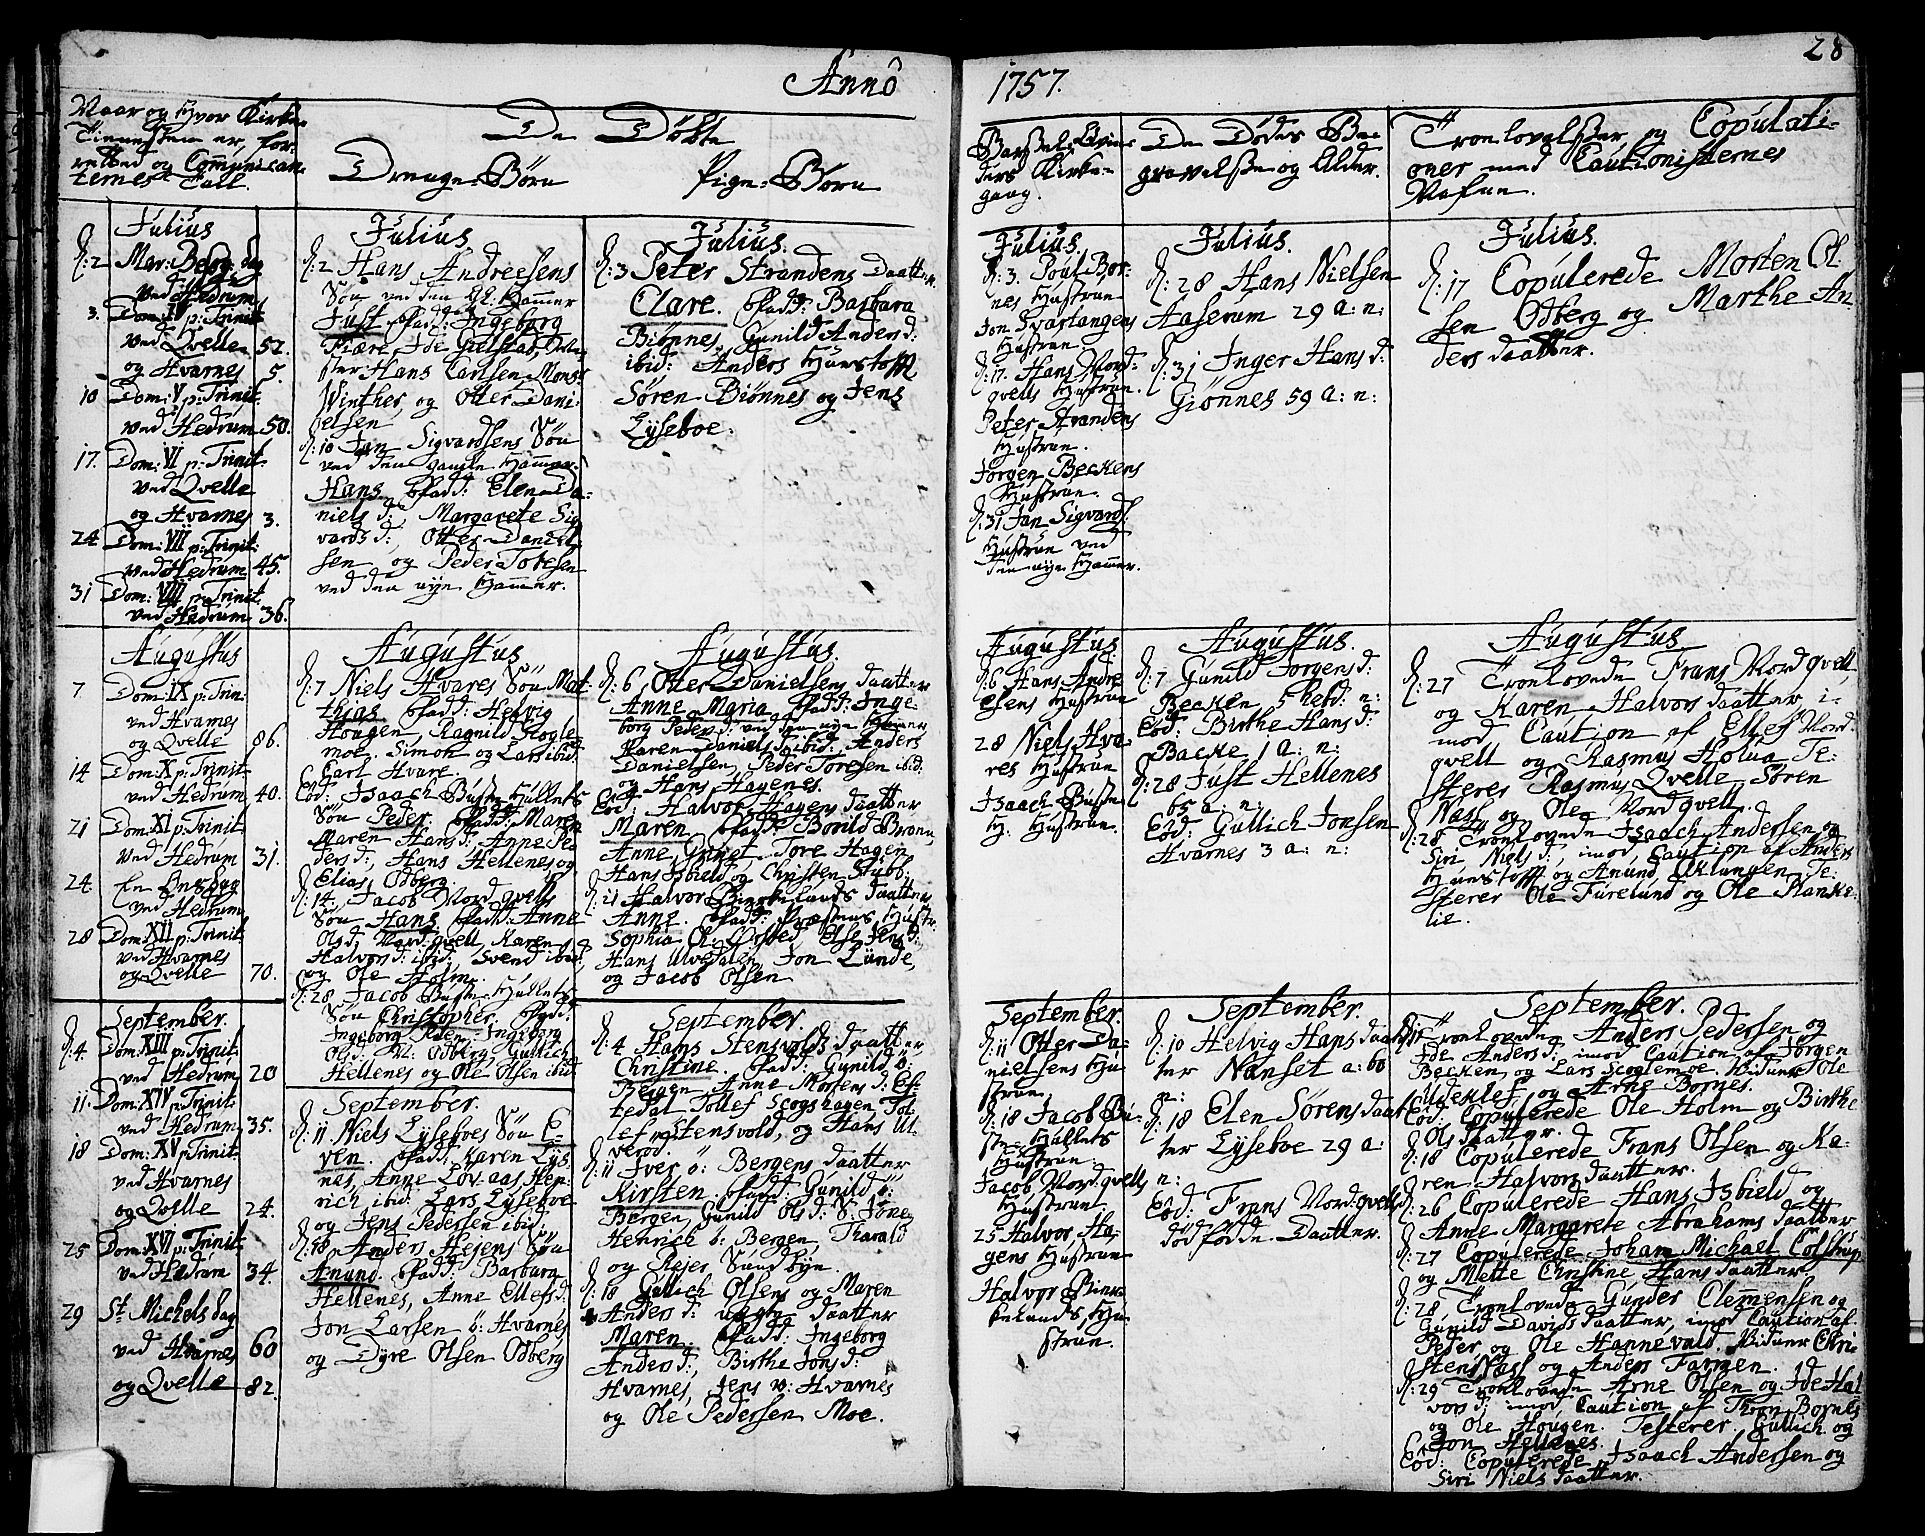 28
Anno
1757.
Naar og Hvor Kirke-
Tienesten er, for-
retted og Communican-
ternes Tall.
De Døbte
Drenge-Børn
Pige-Børn
Barsel-Qvin-
ders Kirke-
gang.
De Dødes Be-
gravelse og Alder.
Troelovelser, og Copulati-
oner med Cautionisternes
Nafne.
Julius
d: 2 Mar: Besøg: dag
ved Hedrum
3. Dom: IV p: Trinit
ved Qvelle 52.
og Hvarnes 5.
10 Dom: V p: Trinit.
ved Hedrum 50.
17. Dom: VI p: Trinit.
ved Qvelle
og Hvarnes 3.
24 Dom: VII p: Trinit:
ved Hedrum 45.
31 Dom: VIII p: Trinit.
ved Hedrum 36.
Julius
d: 2 Hans Andreesens
Søn ved den gl: Hammer
Just. Fadd: Ingeborg
Fiære, Ide Gielstad,
Hans Carlsen Mons:
Winther og Otter Dani-
elsen
d: 10 Jan Sigvardsens Søn
ved den gamle Hammer
Hans. Fadd: Elen Da-
niels d:, Margarete Sig
vards d:, Otter Daniel-
sen og Peder Toresen
ved den nye Hammer.
Julius.
d: 3 Peter Strandens Daatter
Clare. Fadd: Barbara
Biønnes, Gunild Anders d:
ibid: Anders Hunstoff
Søren Biønnes og Jens
Lyseboe.
Julius.
d: 3. Poul Bor-
nes Hustrue
Jon Svartangens
Hustrue.
d: 17. Hans Nord-
qvells Hustrue.
Peter Strandens
Hustrue.
Jørgen Beckens
Hustrue.
d: 31 Jan Sigvards:
Hustrue ved
den nye Hammer.
Julius.
d: 28 Hans Nielsen
Aaserum 29 a: n:
d: 31 Inger Hans d:
Giønnes 59 a: n:
Julius.
d: 17 Copulerede Morten Ol
sen Odberg og Marthe An-
ders daatter.
Augustus
7 Dom: IX p: Trin:
ved Hvarnes
og Qvelle 86.
14 Dom: X p: Trinit.
ved Hedrum 40.
21 Dom: XI p: Trinit
ved Hedrum 31.
24. En Ons dag
ved Hedrum
28 Dom: XII p: Trinit.
ved Hvarnes
og Qvelle 70.
Augustus
d: 7 Niels Hvares Søn Mat-
thias. Fadd: Helvig
Hougen, Ragnild Skogle-
moe. Simon og Lars ibid:
Carl Hvare.
Eod: Isaach Buste-Hullets
Søn Peder. Fadd: Maren
Maren Hans d: Anne Pe-
ders d:, Hans Hellenes og
Elias Odberg.
d: 14. Jacob Nordqvells
Søn Hans. Fadd: Anne
Ols d: Nordqvell, Karen
Halvors d: ibid: Svend ibid:
og Ole Holm.
d: 28 Jacob Buste-Hullets
Søn Christopher. Fadd:
Ingeborg Peder: Ingeborg
Ols d: N: Odberg, Gullich
Hellenes og Ole Olsen ibid:
Augustus.
d: 6 Otter Danielsens Daatter
Anne Maria. Fadd: Inge
borg Peders d: ved den nye Hammer
Karen Daniels d: ibid: Anders
Danielsen, Peder Toresen ibid:
og Hans Hagenes.
Eod: Halvor Hagens Daatter
Maren. Fadd: Borild Brønn,
Anne Grinet, Tore Hagen,
Hans Isbield og Christen Stubb:
d: 21 Halvor Birkelands Daatter
Anne. Fadd: Præstens Hustr:
Sophia Ol: Ørsted, Else Jens d:
Hans Ulvedalen, Jon Lunde,
og Jacob Olsen
Augustus.
d: 6 Hans Andre
esens Hustrue
28 Niels Hva-
res Hustrue
Isaach Buste
H: Hustrue.
Augustus.
d: 7 Gunild Jørgens d:
Becken 5 hebd: n:
Eod: Birthe Hans d:
Backe 1 a: n:
d: 28 Just Hellenes
65 a: n:
Eod: Gullich Jonsen
Hvarnes 3 a: n:
Augustus
d: 27 Troelovede Frans Nordqvell
og Karen Halvors daatter, i-
mod Caution af Ellef Nord-
qvell og Rasmus Holm. Te-
sterer Rasmus Qvelle, Søren
Nass og Ole Nordqvell.
d: 28 Troelovede Isaach Andersen og
Siri Niels d:, imod Caution af Anders
Hunstoff og Amund Oklungen. Te-
sterer Ole Furelund og Ole Planke-
lie.
September.
d: 4 Dom: XIII p: Trinit.
ved Hedrum 20
11. Dom: XIV p: Trinit:
ved Hedrum 35.
18 Dom: XV p: Trinit.
ved Hvarnes
og Qvelle 24.
25 Dom: XVI p: Trinit.
ved Hedrum 34.
29 St: Michels dag
ved Hvarnes 60
og Qvelle 82.
September.
d: 11 Niels Lyseboes Søn E-
ven. Fadd: Karen Lys
nes, Anne Løv-aas, Hen-
rich ibid: Lars Lyseboe
og Jens Pedersen ibid:
d: 18 Anders Hejens Søn
Amund. Fadd: Barbara
Hellenes, Anne Ellefs d:
Jon Larsen ö: Hvarnes
og Dyre Olsen Odberg
September.
d: 4 Hans Stensvolds Daatter
Christine. Fadd: Gunild ö:
Bergen, Anne Mortens d: Ef-
tedal, Tollef Skogshagen, Tol
lef Stensvold, og Hans Ul
verød.
d: 11 Iver ö: Bergens Daatter
Kirsten. Fadd: Gunild ö:
Bergen, Gunild Ols d: S: Jøne,
Henrich ö: Bergen, Tharald
og Rejer Sundbyn.
d: 18 Gullich Olsens og Maren
Anders d: uægte Daatter
Maren. Fadd: Ingeborg
Anders d:, Birthe Jons d:
Hvarnes, Jens n: Hvarnes
og Ole Pedersen Moe.
September.
d: 11 Otter Da-
nielsens Hu-
strue,
d: 18 Jacob Bu-
ste-Hullets
Hustrue.
Jacob Nordqvells
Hustrue.
25 Halvor Ha-
gens Hustrue
Halvor Bier-
kelands Hu-
strue.
September.
d: 10 Helvig Hans daat-
ter Nanset a: 60
n:
d: 18 Elen Sørens daat
ter Lyseboe 29 a:
n:
Eod: Frans Nordqvells
dødfødde Daatter.
September.
d: 1 Troelovede Anders Pedersen og
Ide Anders d: imod Caution af Jørgen
Becken og Lars Scoglemoe. Vidner Ole
Uldeklef og Arne Bornes.
Eod: Copulerede Ole Holm og Birthe
Ols daatter.
d: 18 Copulerede Frans Olsen og Ka-
ren Halvors daatter.
d: 26 Copulerede Hans Isbield og
Anne Margarete Abrahams daatter
d: 27 Copulerede Johan Michael Colstrup
og Mette Christine Hans daatter
d: 28 Troelovede Gunder Clemensen og
Gunild Davids daatter, imod Caution af
Peder og Ole Hannevald. Vidner Chri
sten Nass og Anders Farmen.
d: 29 Troelovede Arne Olsen og Ide Hal
vors d: imod Caution af Tron Bornes
og Ole Hougen. Testerer Gullich og
Jon Hellenes.
Eod: Copulerede Isaach Andersen og
Siri Niels daatter.